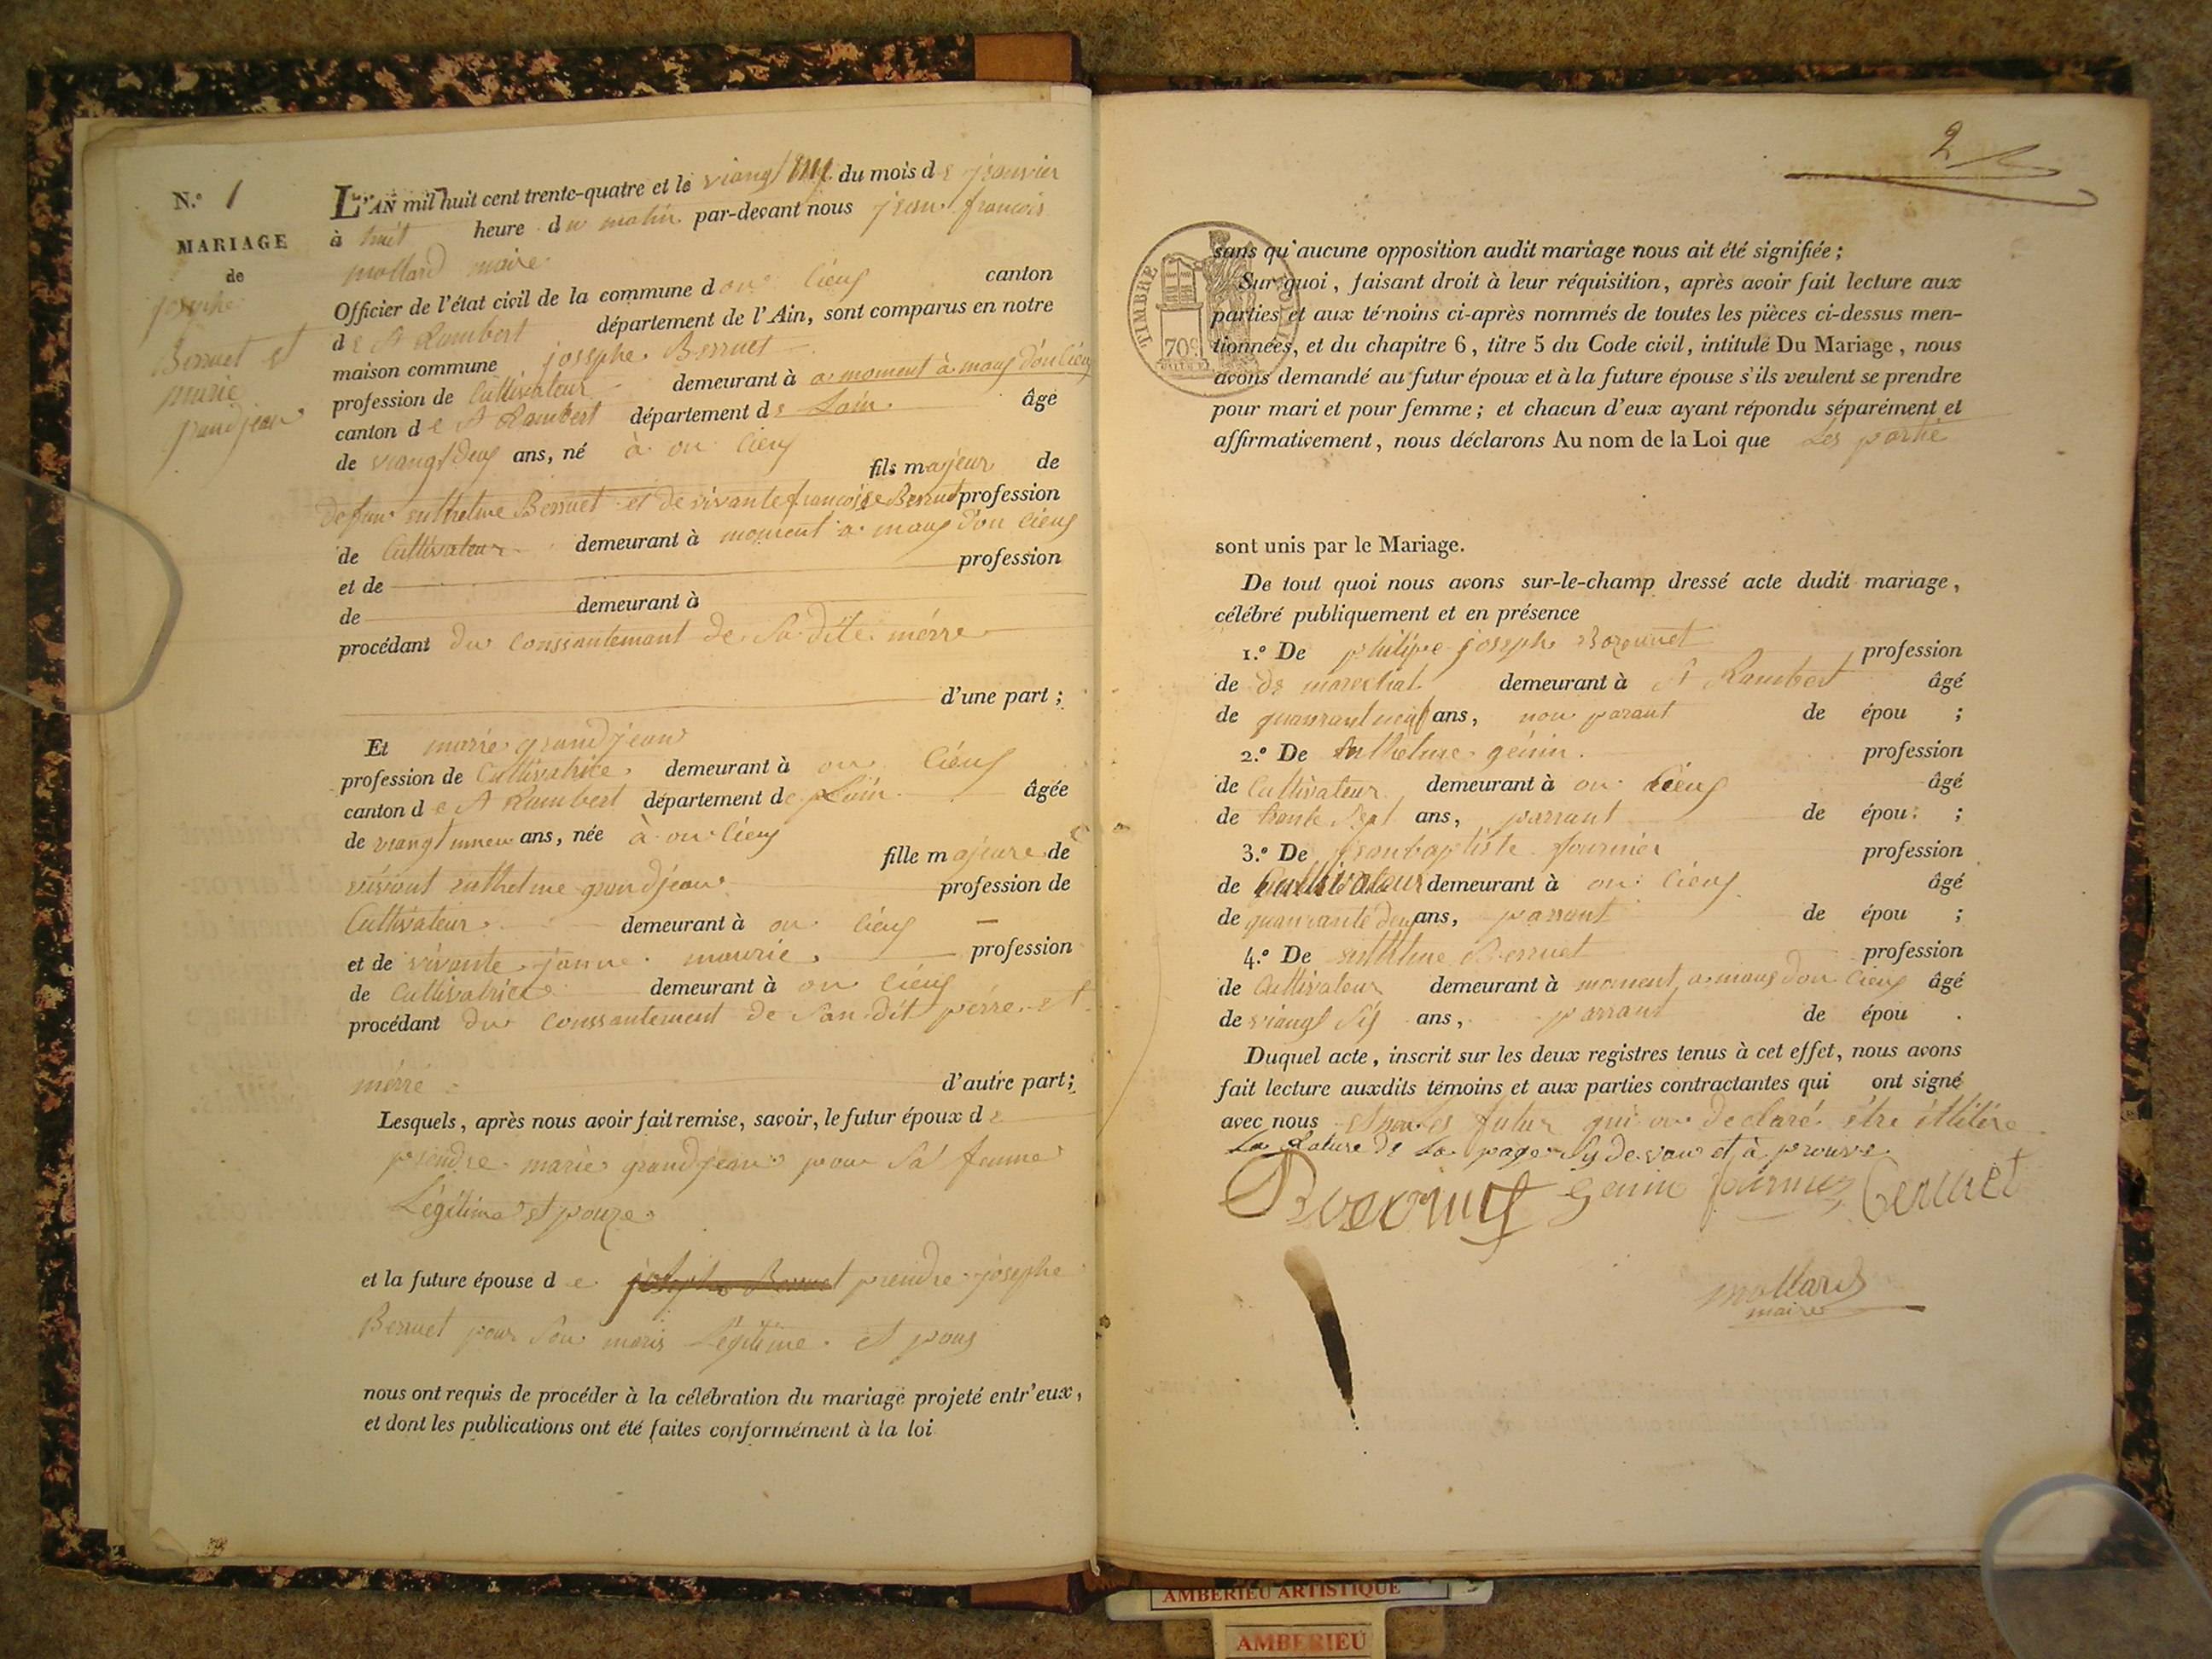 N.o 1
MARIAGE
de
josephe
Berruet et
marie
grandjean
L'AN mil huit cent trente-quatre et le viangt du mois de janvier
à huit heure du matin par-devant nous jean françois
mollard maire
Officier de l'état civil de la commune d'on cieux canton
de St Rambert département de l'Ain, sont comparus en notre
maison commune josephe Berruet
profession de Cultivateur demeurant à a moment à mans d'oncieux
canton de St Rambert département de Lain âgé
de viangt deux ans, né à on cieux
fils majeur de
defun enthelme Berruet et de vivante françoise Berrud profession
de Cultivateur demeurant à moment a mans d'on cieux
et de profession
de demeurant à
procédant du conssantemant de Sa dite mérre
d'une part ;
Et marie grandjean
profession de Cultivatrice demeurant à on Cieux
canton de St Rambert département de Lain âgée
de viangt unneu ans, née à on cieux
fille majeure de
vivant enthelme grandjean profession de
Cultivateur demeurant à on cieux
et de vivante janne mourie profession
de Cultivatrice demeurant à on cieux
procédant du conssantement de San dit pérre et
mérré d'autre part ;
Lesquels, après nous avoir fait remise, savoir, le futur époux de
prendre marie grandjean pour Sa femme
Légitime et pouze
et la future épouse de josephe Berruet prendre josephe
Berruet pour Son maris Légitime et poux
nous ont requis de procéder à la célébration du mariage projeté entr'eux,
et dont les publications ont été faites conformément à la loi
2
TIMBRE
70c
sans qu'aucune opposition audit mariage nous ait été signifiée ;
Sur quoi, faisant droit à leur réquisition, après avoir fait lecture aux
parties et aux témoins ci-après nommés de toutes les pièces ci-dessus men-
tionnées, et du chapitre 6, titre 5 du Code civil, intitulé Du Mariage, nous
avons demandé au futur époux et à la future épouse s'ils veulent se prendre
pour mari et pour femme ; et chacun d'eux ayant répondu séparément et
affirmativement, nous déclarons Au nom de la Loi que Les partie
sont unis par le Mariage.
De tout quoi nous avons sur-le-champ dressé acte dudit mariage,
célébré publiquement et en présence
1.o De philipe joseph profession
de de marechal demeurant à St Rambert âgé
de quanrant neuf ans, non parant de épou ;
2.o De enthelme génin profession
de Cultivateur demeurant à on Cieux âgé
de trante Sept ans, parrant de épou ;
3.o De jeanbaptiste fournier profession
de Cultivateur demeurant à on Cieux âgé
de quanrante deux ans, parrant de épou ;
4.o De enthelme Berruet profession
de Cultivateur demeurant à moment a mans d'on Cieux âgé
de viangt Six ans, parrant de épou .
Duquel acte, inscrit sur les deux registres tenus à cet effet, nous avons
fait lecture auxdits témoins et aux parties contractantes qui ont signé
avec nous et non les futur qui on declaré étre illitére
La Rature de La page Sy devan et à prouve
Genin fournier Beruet
mollard
maire
AMBERIEU ARTISTIQUE
AMBERIEU